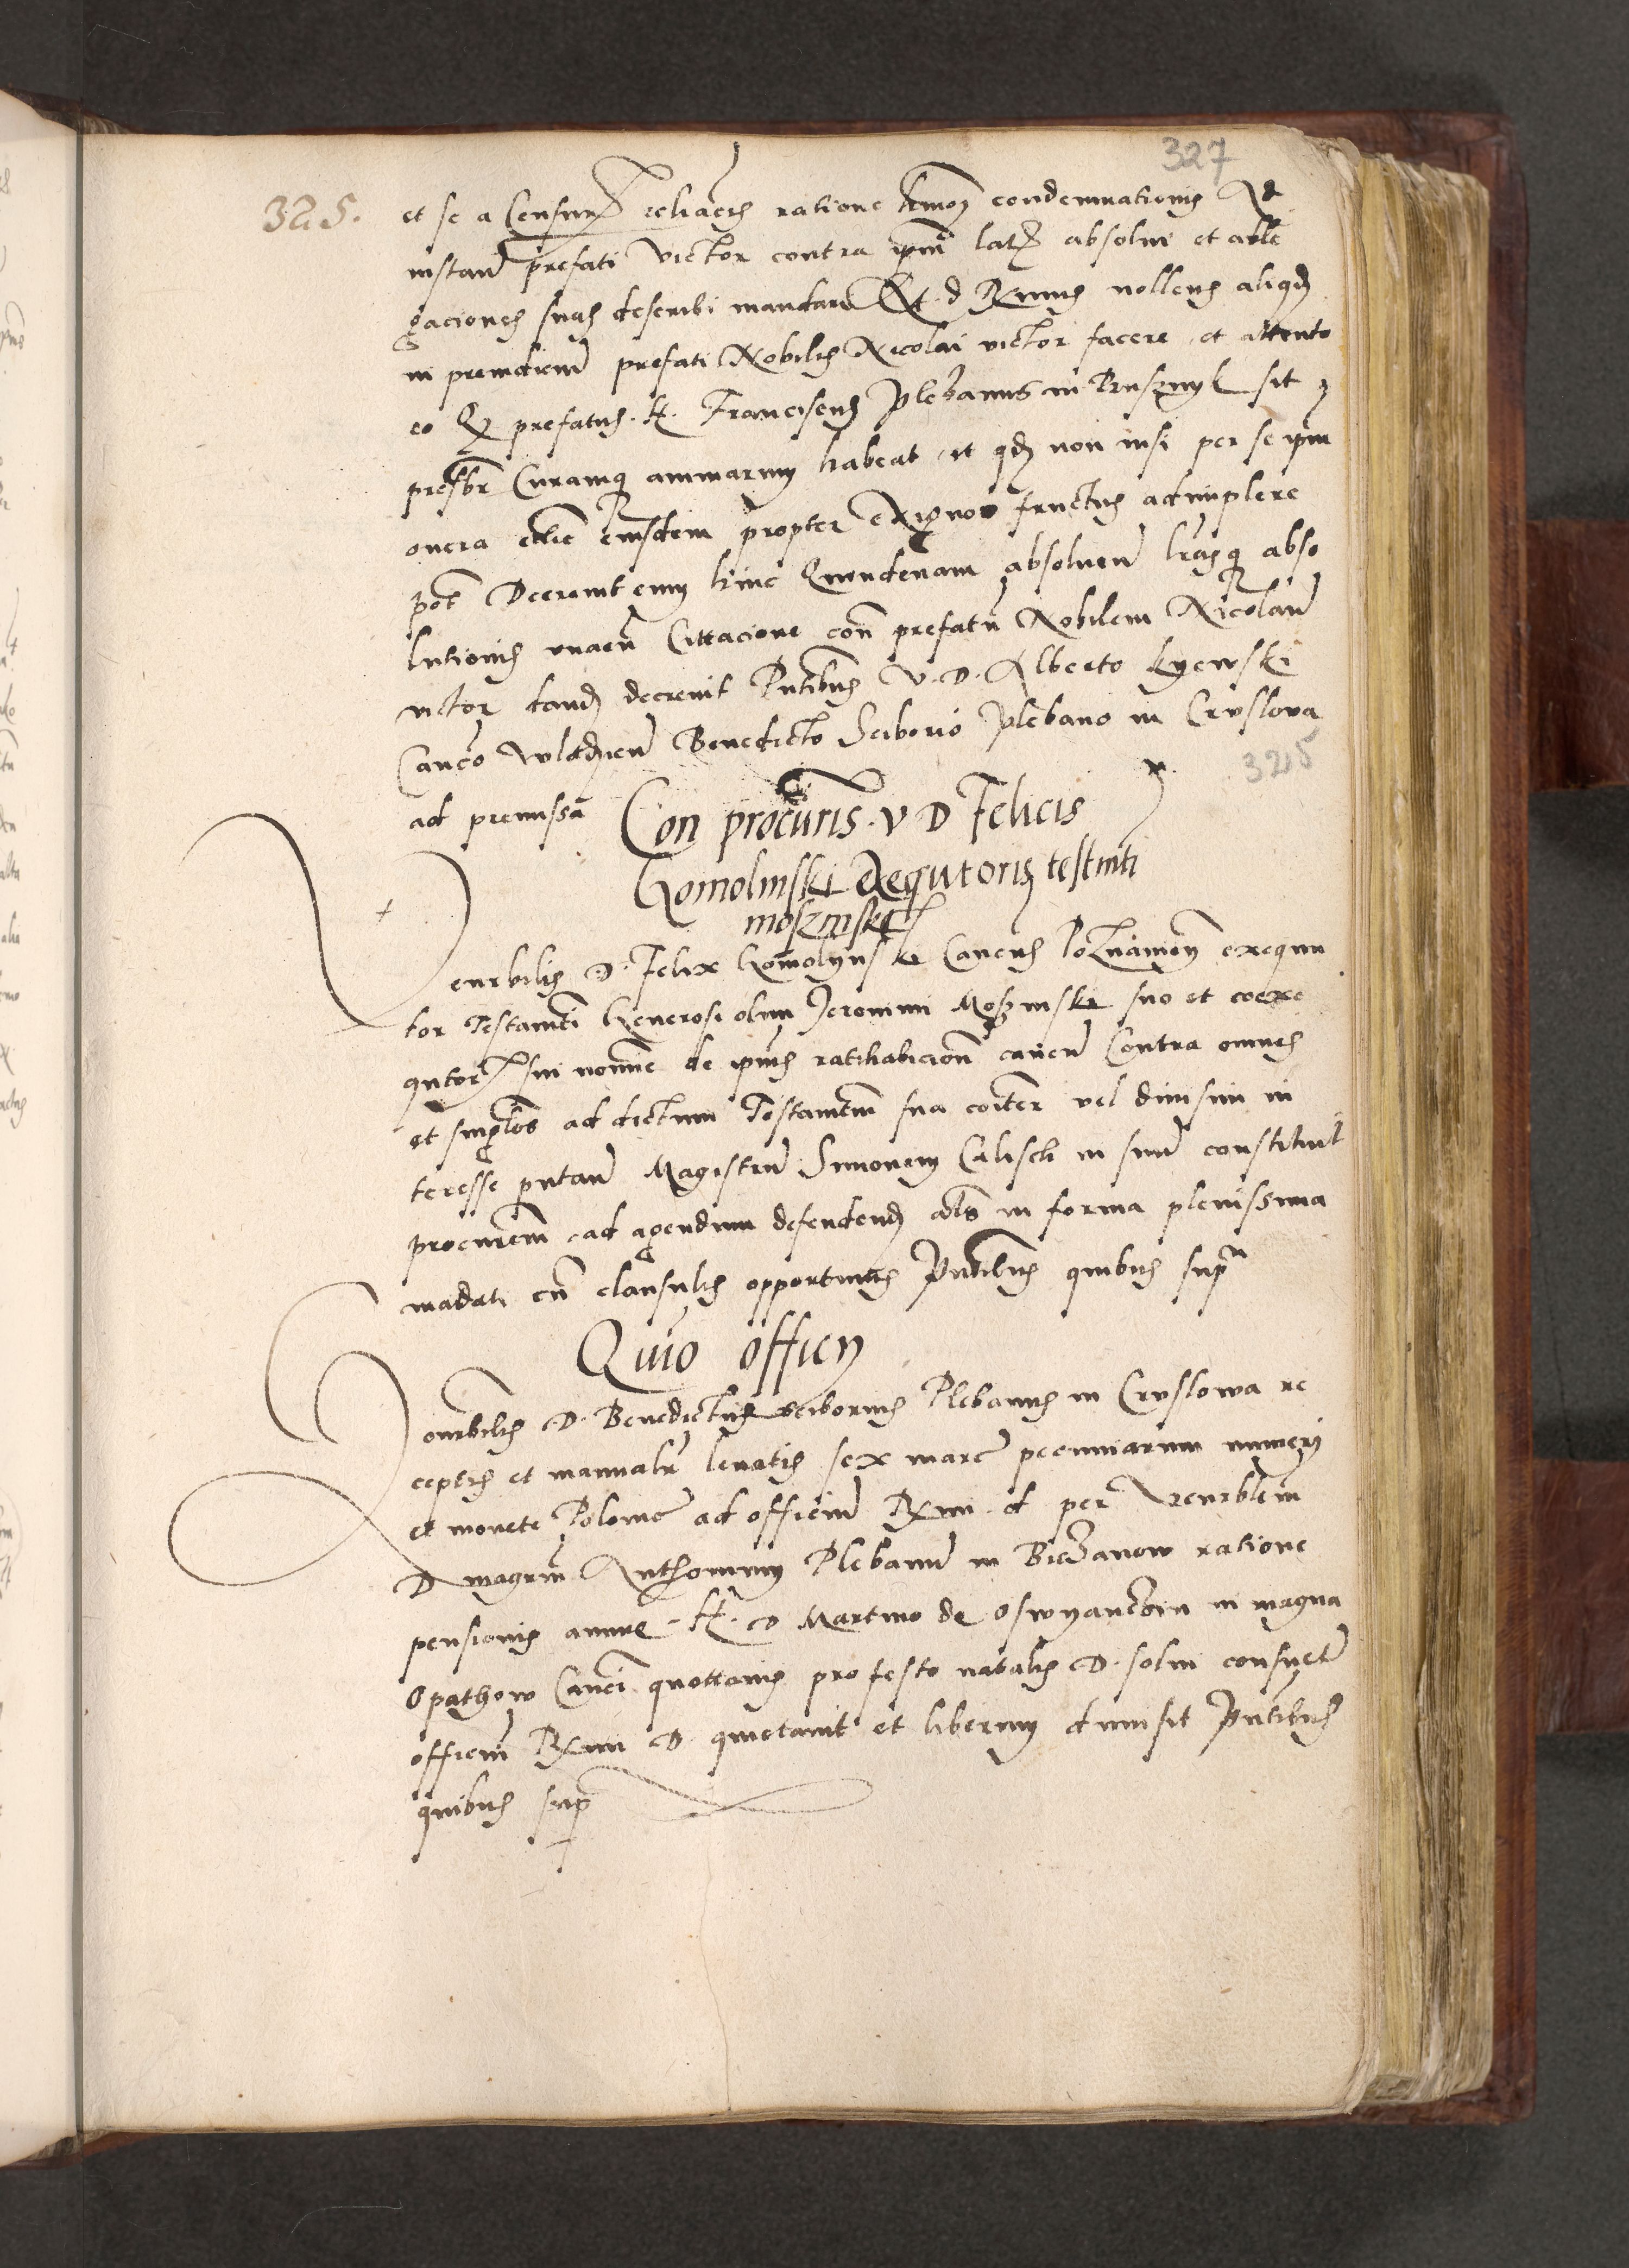 327
325.
et se a Censur reliaers ratione dmoꝝ condemnationis Ad
instan prefati Victor contra ipm lat absolui et alle
gaciones suas describi mandar Et d Rmus nollens aliqd
in preiudicium prefati Nobilis Nicolai victor facere et attento
eo Qꝫ prefatus H. Franciscus Plebanus in Brusznyk sit
presbr Curamq animarum habeat et qd non nisi per se ipm
onera eccle eiusdem propter exiguos fructus adimplere
pot Decreuit eum hinc Quindenam absoluen lrasq abso
lutionis vnacu Cittacione con prefatu Nobilem Nicolaum
victor dand decreuit Pntibus V. D. Alberto kyewski
Canco Vladzien Benedicto Sciborio Plebano in Cruslova
325
ad premissa
Con procuris V D Felicis
Komolinski Exequtoris testmti
moszinski
Venrbilis D. Felix Komolynski Cancus Poznanien exequu
tor Testamti Generosi olim Jeronimi Moszinski suo et coexe
qutor sui nomine de ipius ratihabicion cauen Contra omnes
et singlos ad dictum Testamtum sua coiter vel diuisim in
teresse putan Magistrum Simonem Calisch in suum constituit
procurem ad agendum defendend als in forma plenissima
madati cu clausulis opportunis Pntibus quibus supra
Quio officij
Honrbilis D. Benedictus Sciborius Plebanus in Cruslowa re
ceptis et manualr leuatis sex marc pecuniarum numeri
et monete Polonic ad officium Rmi d per Venrblem
D magrum Anthonium Plebanum in Biezanow ratione
pensionis annue H. D Martino de Oswyanczim in magna
Opathow Canci quottanis pro festo natalis D. solui consuet
officium Rmi D quietauit et liberum dimisit Pntibus
quibus supra